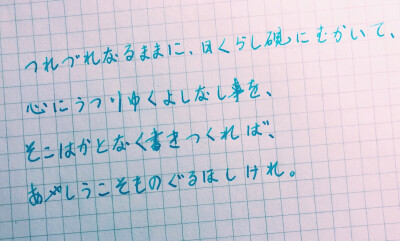 つれづれなるままに、日くらし硯にむかいて、
心にうつりゆくよしなし事を、
そこはかとなく書きつくれば、
あやしうこそものぐるほしけれ。